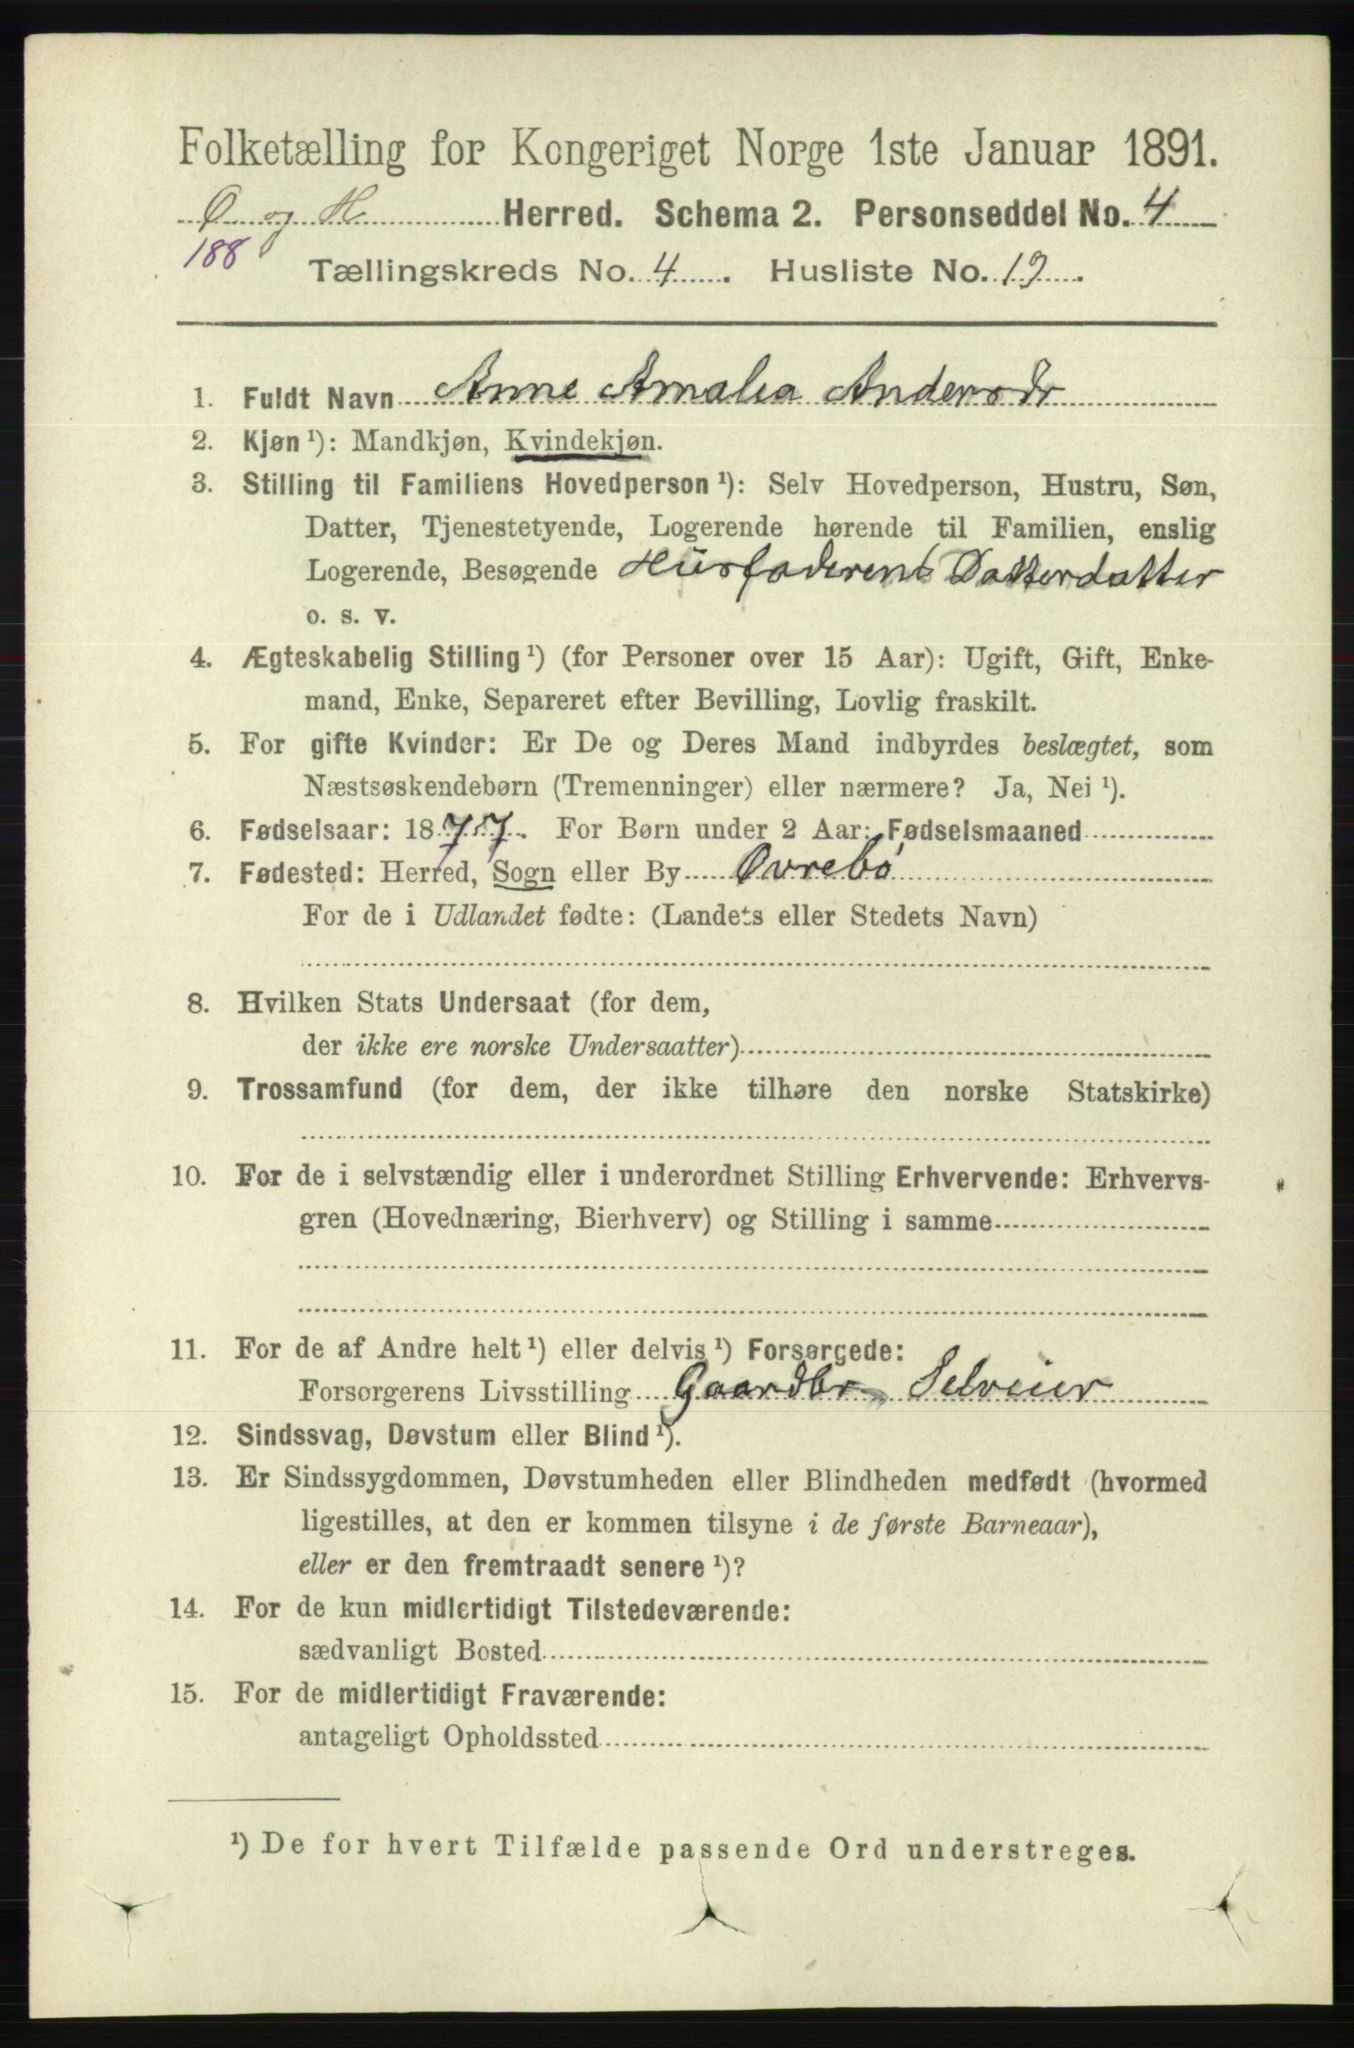 Folketælling for Kongeriget Norge 1ste Januar 1891.
Ø og H. Herred. Schema 2. Personseddel No. 4
188
Tællingskreds No. 4. Husliste No. 19.
1. Fuldt Navn Anne Amalia Andersdr
2. Kjøn ¹): Mandkjøn, Kvindekjøn.
3. Stilling til Familiens Hovedperson ¹): Selv Hovedperson, Hustru, Søn,
Datter, Tjenestetyende, Logerende hørende til Familien, enslig
Logerende, Besøgende Husfaderens Datterdatter
o. s. v.
4. Ægteskabelig Stilling ¹) (for Personer over 15 Aar): Ugift, Gift, Enke-
mand, Enke, Separeret efter Bevilling, Lovlig fraskilt.
5. For gifte Kvinder: Er De og Deres Mand indbyrdes beslægtet, som
Næstsøskendebørn (Tremenninger) eller nærmere? Ja, Nei ¹).
6. Fødselsaar: 1877. For Børn under 2 Aar: Fødselsmaaned
7. Fødested: Herred, Sogn eller By Øvrebø
For de i Udlandet fødte: (Landets eller Stedets Navn)
8. Hvilken Stats Undersaat (for dem,
der ikke ere norske Undersaatter)
9. Trossamfund (for dem, der ikke tilhøre den norske Statskirke)
10. For de i selvstændig eller i underordnet Stilling Erhvervende: Erhvervs-
gren (Hovednæring, Bierhverv) og Stilling i samme
11. For de af Andre helt ¹) eller delvis ¹) Forsørgede:
Forsørgerens Livsstilling Gaardbr. Selveier
12. Sindssvag, Døvstum eller Blind ¹).
13. Er Sindssygdommen, Døvstumheden eller Blindheden medfødt (hvormed
ligestilles, at den er kommen tilsyne i de første Barneaar),
eller er den fremtraadt senere ¹)?
14. For de kun midlertidigt Tilstedeværende:
sædvanligt Bosted
15. For de midlertidigt Fraværende:
antageligt Opholdssted
¹) De for hvert Tilfælde passende Ord understreges.